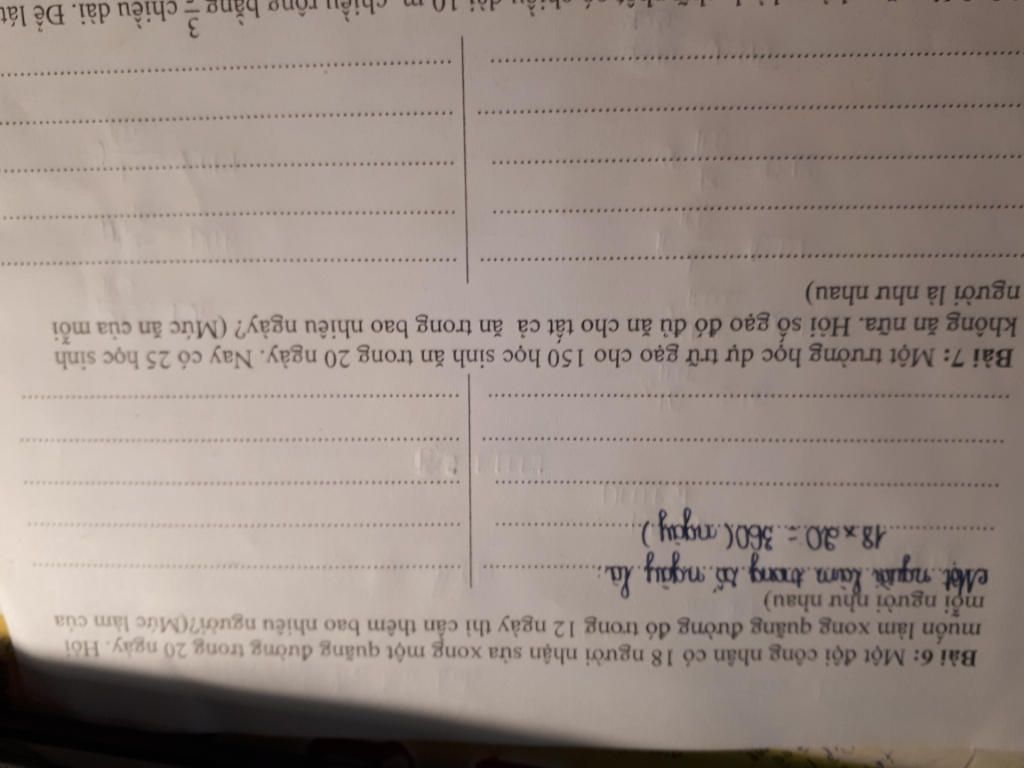 Bài 6: Một đội công nhân có 18 người nhận sửa xong một quãng đường trong 20 ngày. Hỏi
muốn làm xong quãng đường đó trong 12 ngày thì cần thêm bao nhiêu người?(Mức làm của
mỗi người như nhau)
Một người làm trong số ngày là:
18 x 20 = 360 (ngày)
Bài 7: Một trường học dự trữ gạo cho 150 học sinh ăn trong 20 ngày. Nay có 25 học sinh
không ăn nữa. Hỏi số gạo đó đủ ăn cho tất cả ăn trong bao nhiêu ngày? (Mức ăn của mỗi
người là như nhau)
chiều dài 10 m, chiều rộng bằng 3 chiều dài. Để lát